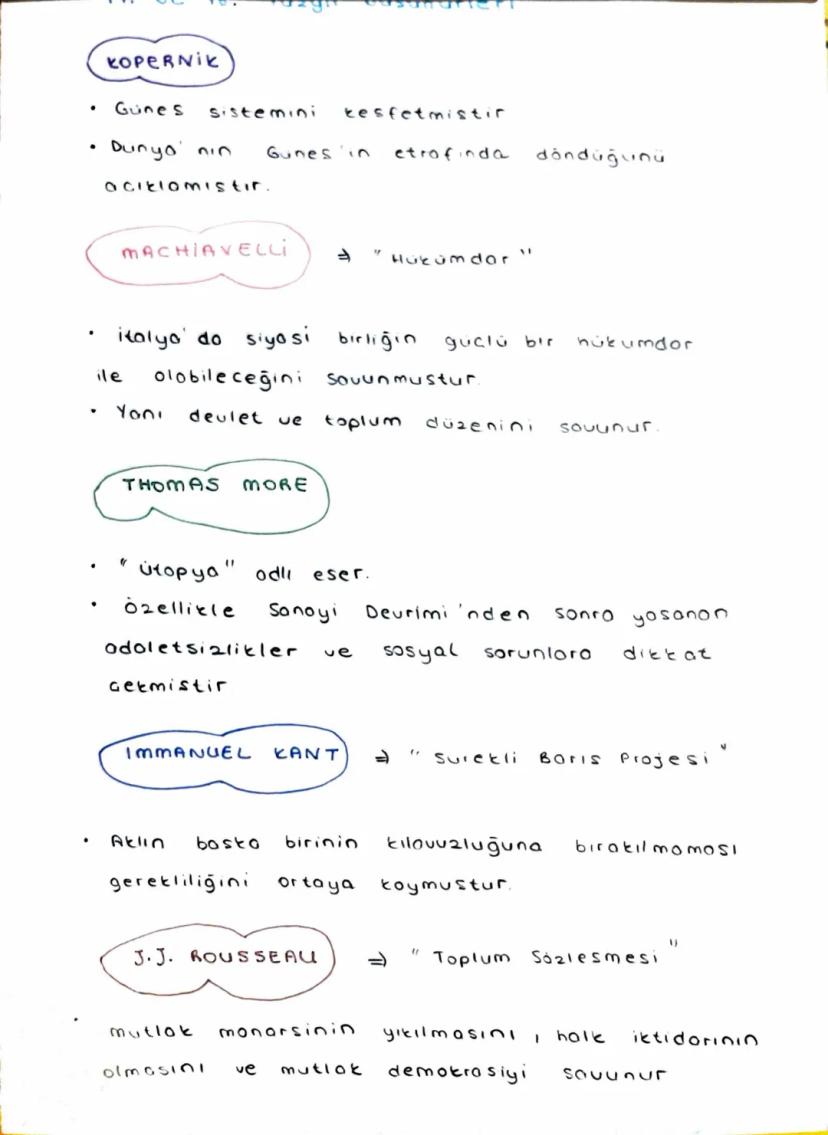 KOPERNİK
• Güneş sistemini keşfetmiştir
• Dünya'nın Güneş'in etrafında döndüğünü
açıklamıştır.
MACHİAVELLİ ⇒ "Hükümdar"
• İtalya'da siyasi birliğin güçlü bir hükümdar
ile olabileceğini savunmuştur.
• Yani devlet ve toplum düzenini savunur.
THOMAS MORE
• "Ütopya" adlı eser.
• Özellikle Sanayi Devrimi'nden sonra yaşanan
adaletsizlikler ve sosyal sorunlara dikkat
çekmiştir
IMMANUEL KANT ⇒ "Sürekli Barış Projesi"
• Aklın başka birinin kılavuzluğuna bırakılmaması
gerekliliğini ortaya koymuştur.
J.J. ROUSSEAU ⇒ "Toplum Sözleşmesi"
• mutlak monarşinin yıkılmasını, halk iktidarının
olmasını ve mutlak demokrasiyi savunur